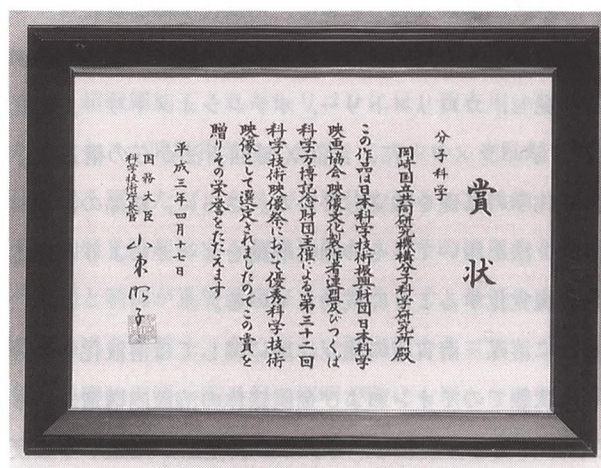 賞状
分子科学
岡崎国立共同研究機構分子科学研究所殿
この作品は日本科学技術振興財団日本科学
映画協会映像文化製作者連盟及びつくば
科学万博記念財団主催による第三十二回
科学技術映像祭に於て優秀科学技術
映像として選定されましたのでこの賞を
贈りその栄誉をたたえます
平成三年四月十七日
国務大臣
科学技術庁長官 山東昭子